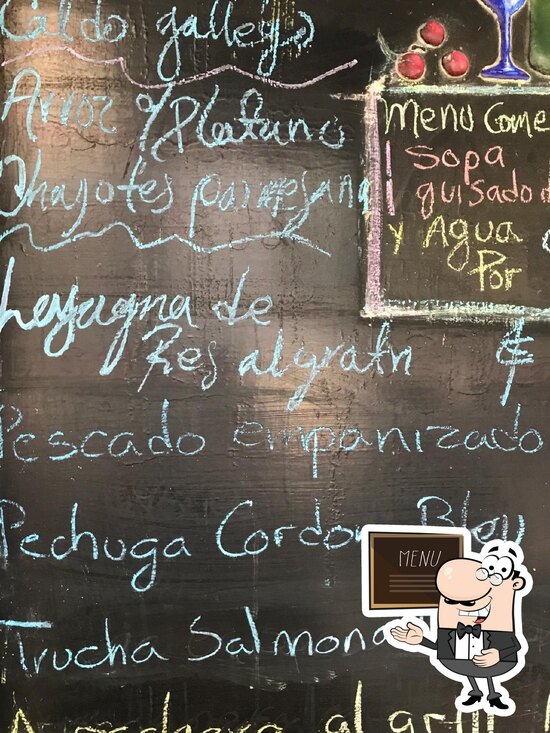 Caldo gallego
Arroz c/ Platano
Chayotes parmesana
Lasagna de
Res al gratn
Pescado empanizado
Pechuga Cordon Bleu
Trucha Salmona
al
Menu Come
Sopa
guisado
y Agua
Por
MENU